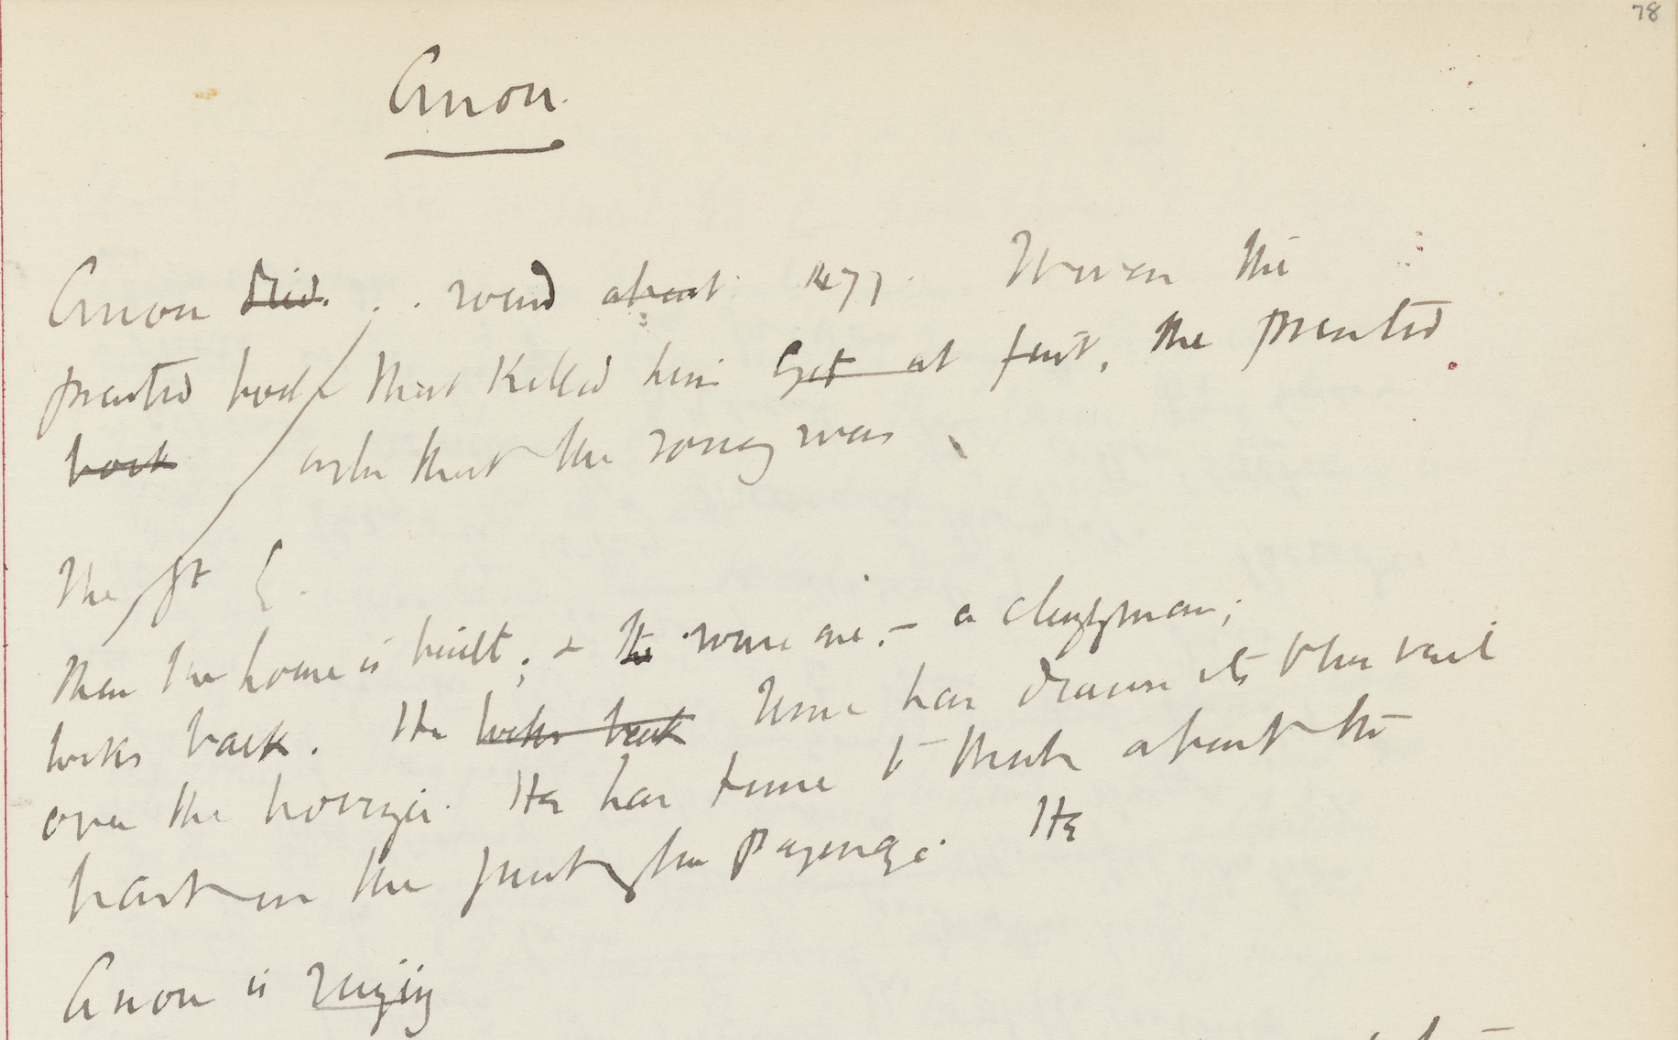 78
Anon.
Anon died. . . round about 1477. It was the
printed book that killed him Yet at first, the printed
book that the song was
The first
Then the house is built; & the some one - a clergyman;
looks back. He looks back Time has drawn its blue veil
over the horizon. He has time to think about the
past in the
He
Anon is singing